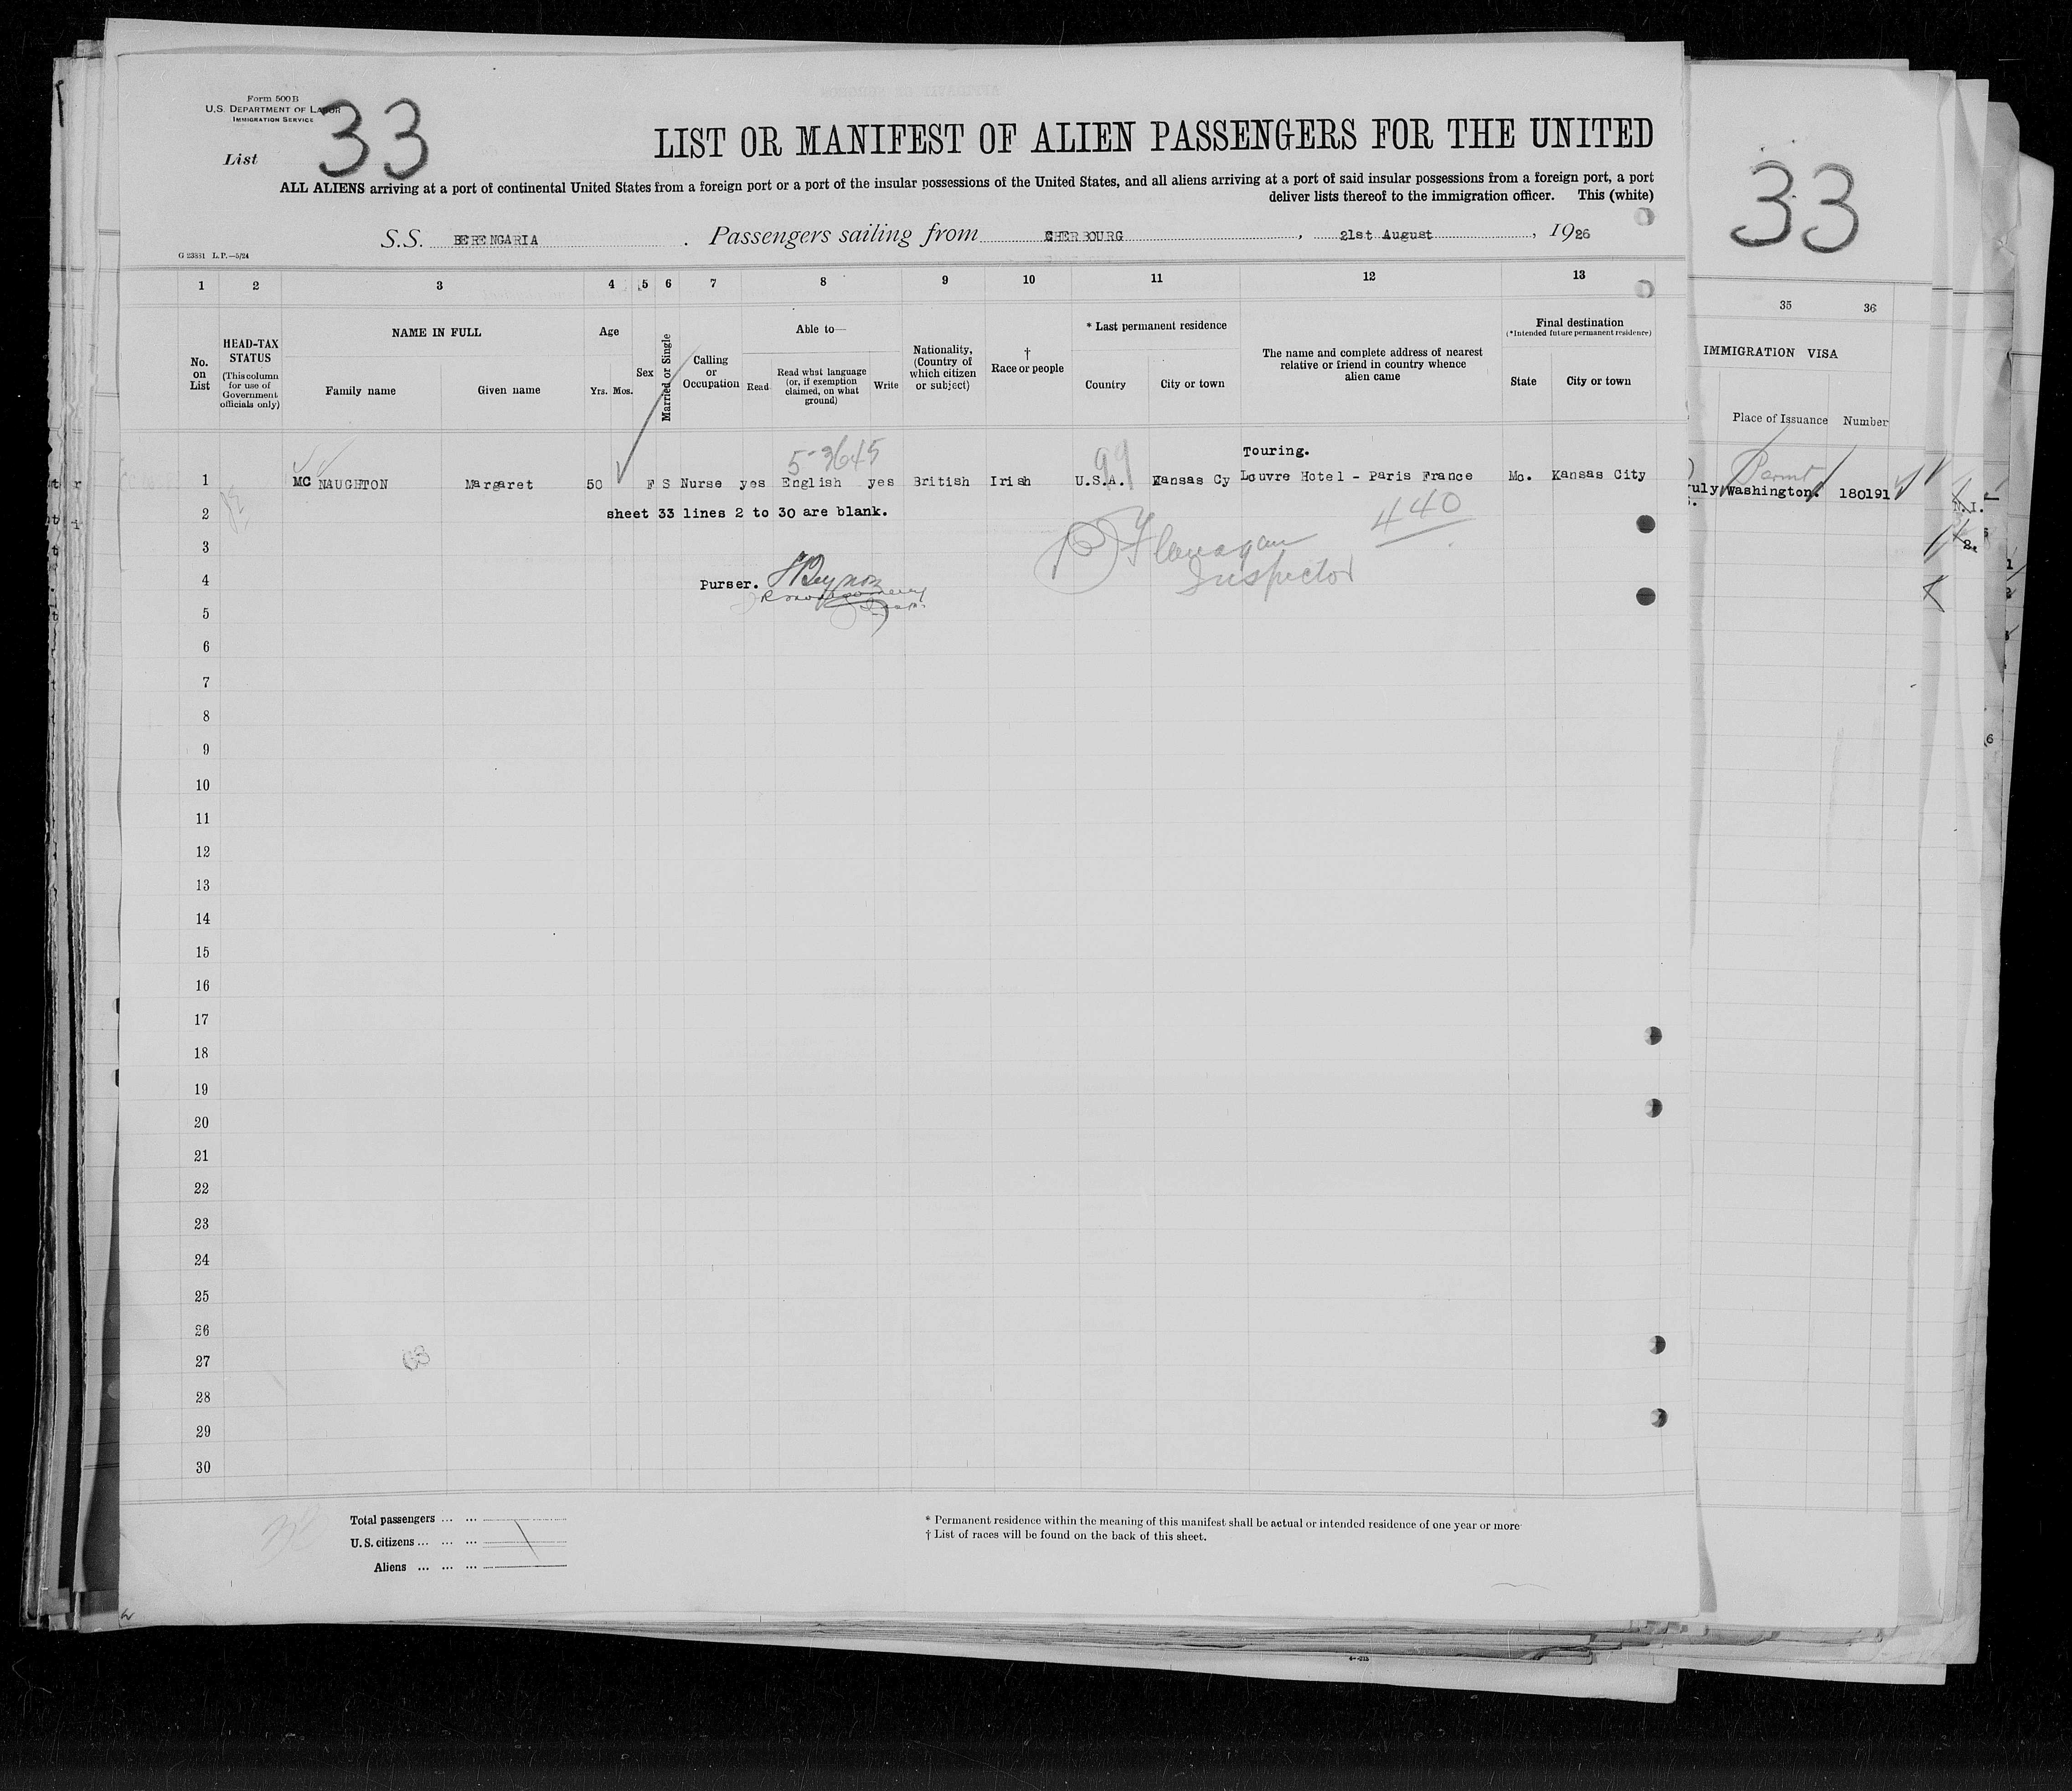 Form 500B
U.S. DEPARTMENT OF LABOR
IMMIGRATION SERVICE
List 33
LIST OR MANIFEST OF ALIEN PASSENGERS FOR THE UNITED
ALL ALIENS arriving at a port of continental United States from a foreign port or a port of the insular possessions of the United States, and all aliens arriving at a port of said insular possessions from a foreign port, a port
deliver lists thereof to the immigration officer. This (white)
S.S. BERENGARIA. Passengers sailing from CHERBOURG, 21st August, 1926
G 23881 L.P.—5/24
33
1 2 3 4 5 6 7 8 9 10 11 12 13
35 36
No. on List
HEAD-TAX STATUS (This column for use of Government officials only)
NAME IN FULL
Family name Given name
Age
Yrs. Mos.
Sex
Married or Single
Calling or Occupation
Able to—
Read
Read what language (or, if exemption claimed, on what ground)
Write
Nationality, (Country of which citizen or subject)
† Race or people
* Last permanent residence
Country City or town
The name and complete address of nearest relative or friend in country whence alien came
Final destination
(*Intended future permanent residence)
State City or town
IMMIGRATION VISA
Place of Issuance Number
5-3645
99
Touring.
Permit
1 MC NAUGHTON Margaret 50 F S Nurse yes English yes British Irish U.S.A. Kansas Cy Louvre Hotel - Paris France Mo. Kansas City
uly Washington. 180191
2 sheet 33 lines 2 to 30 are blank.
440
3
Flanagan
Inspector
4 Purser.
5
6
7
8
9
10
11
12
13
14
15
16
17
18
19
20
21
22
23
24
25
26
27
28
29
30
Total passengers ... ...
U.S. citizens ... ... ...
Aliens ... ... ...
* Permanent residence within the meaning of this manifest shall be actual or intended residence of one year or more
† List of races will be found on the back of this sheet.